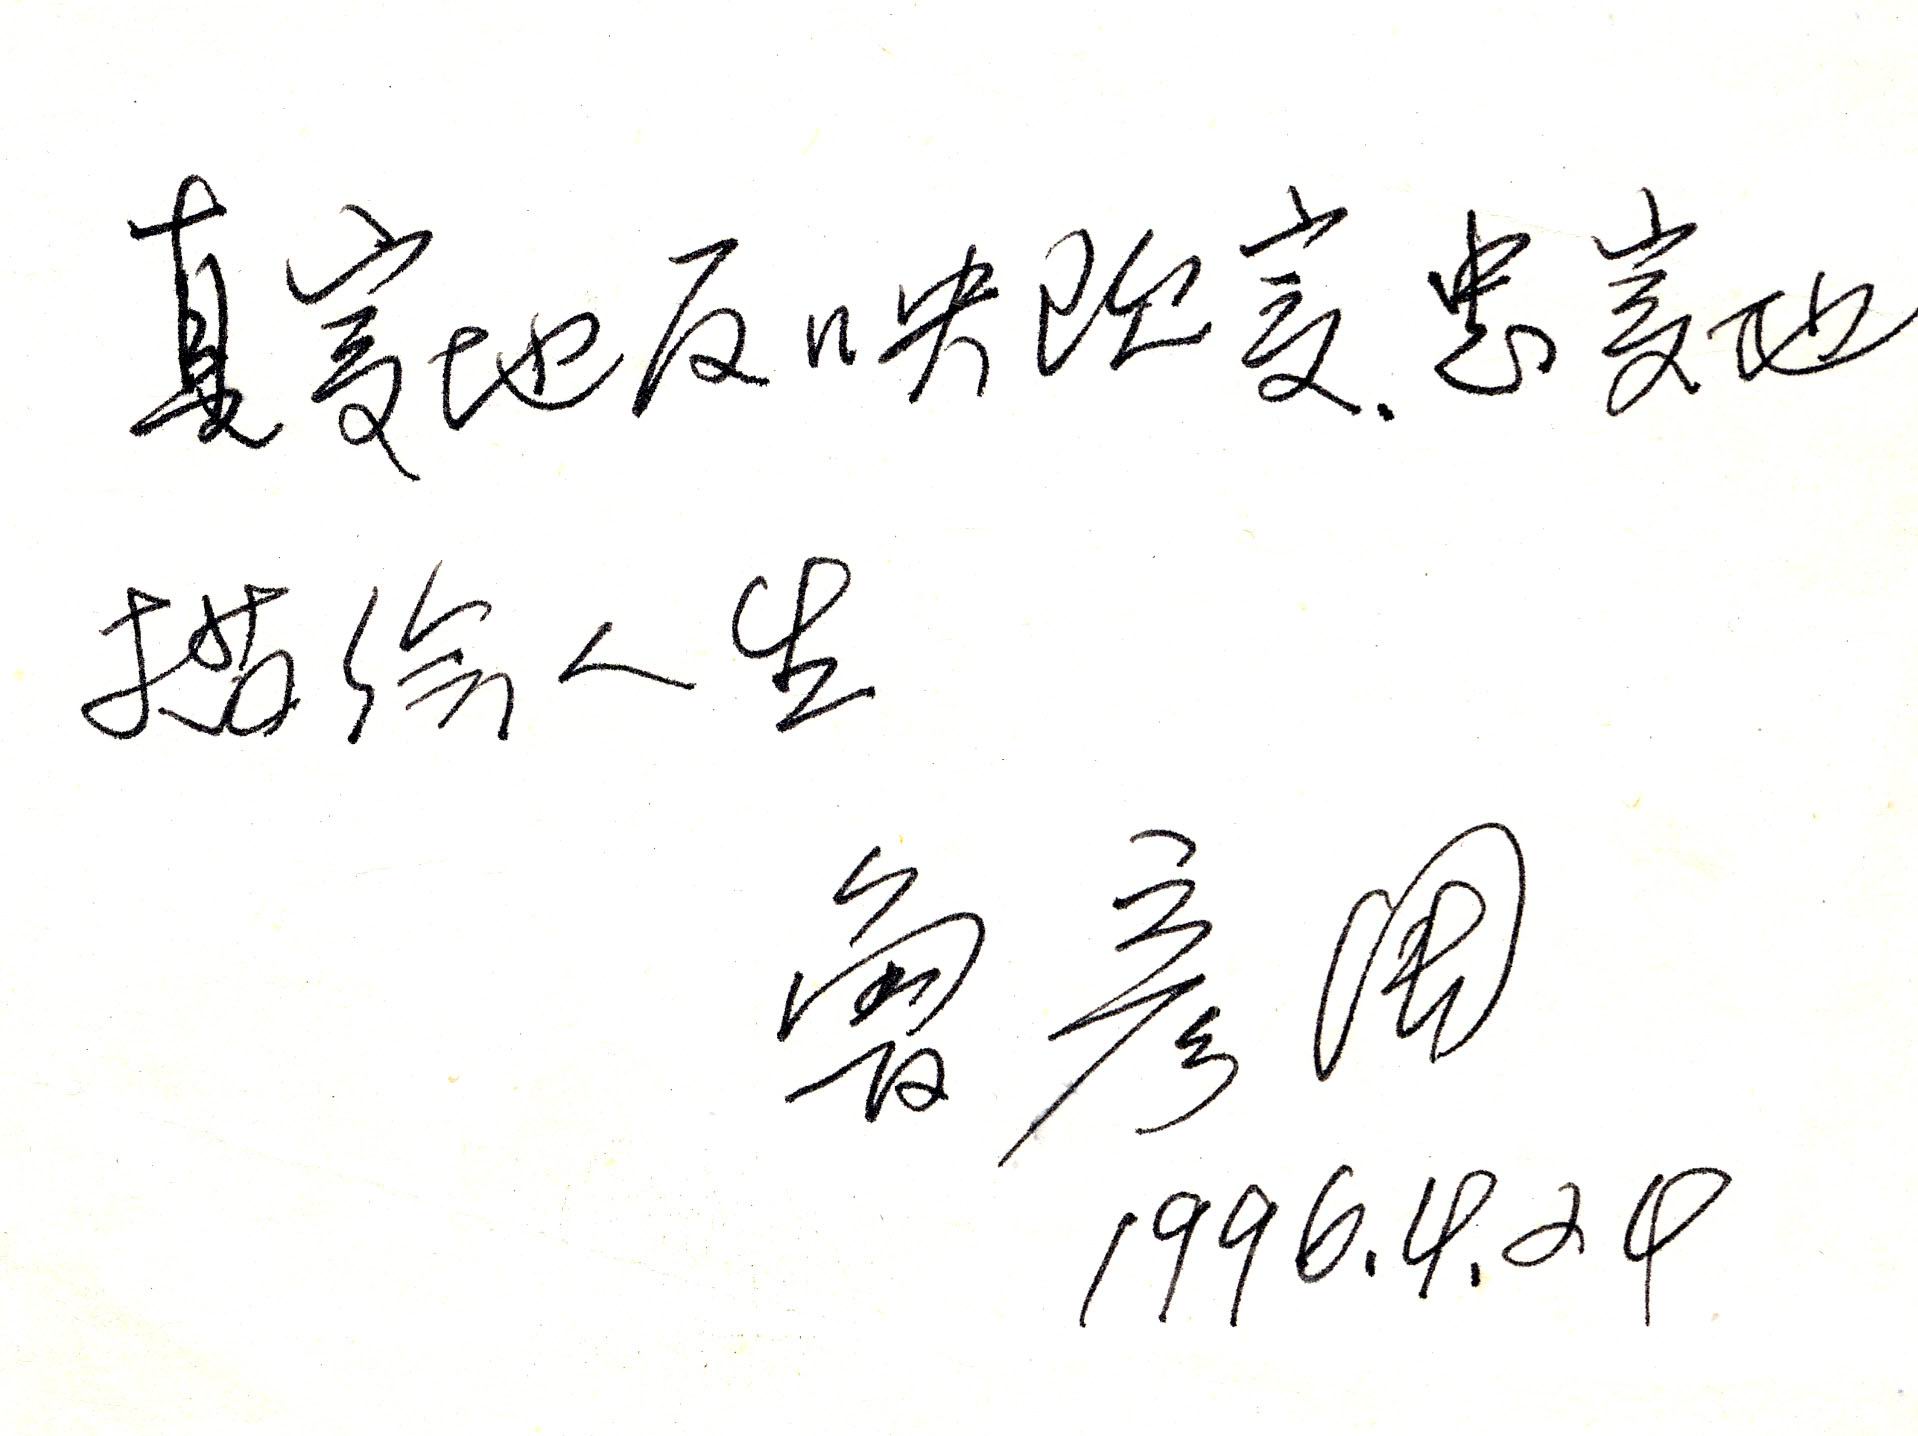 真实地反映现实.忠实地
描绘人生
鲁彦周
1996.4.24